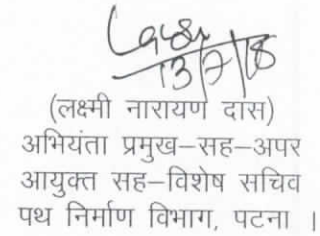 13/7/18
(लक्ष्मी नारायण दास)
अभियंता प्रमुख–सह–अपर
आयुक्त सह–विशेष सचिव
पथ निर्माण विभाग, पटना ।